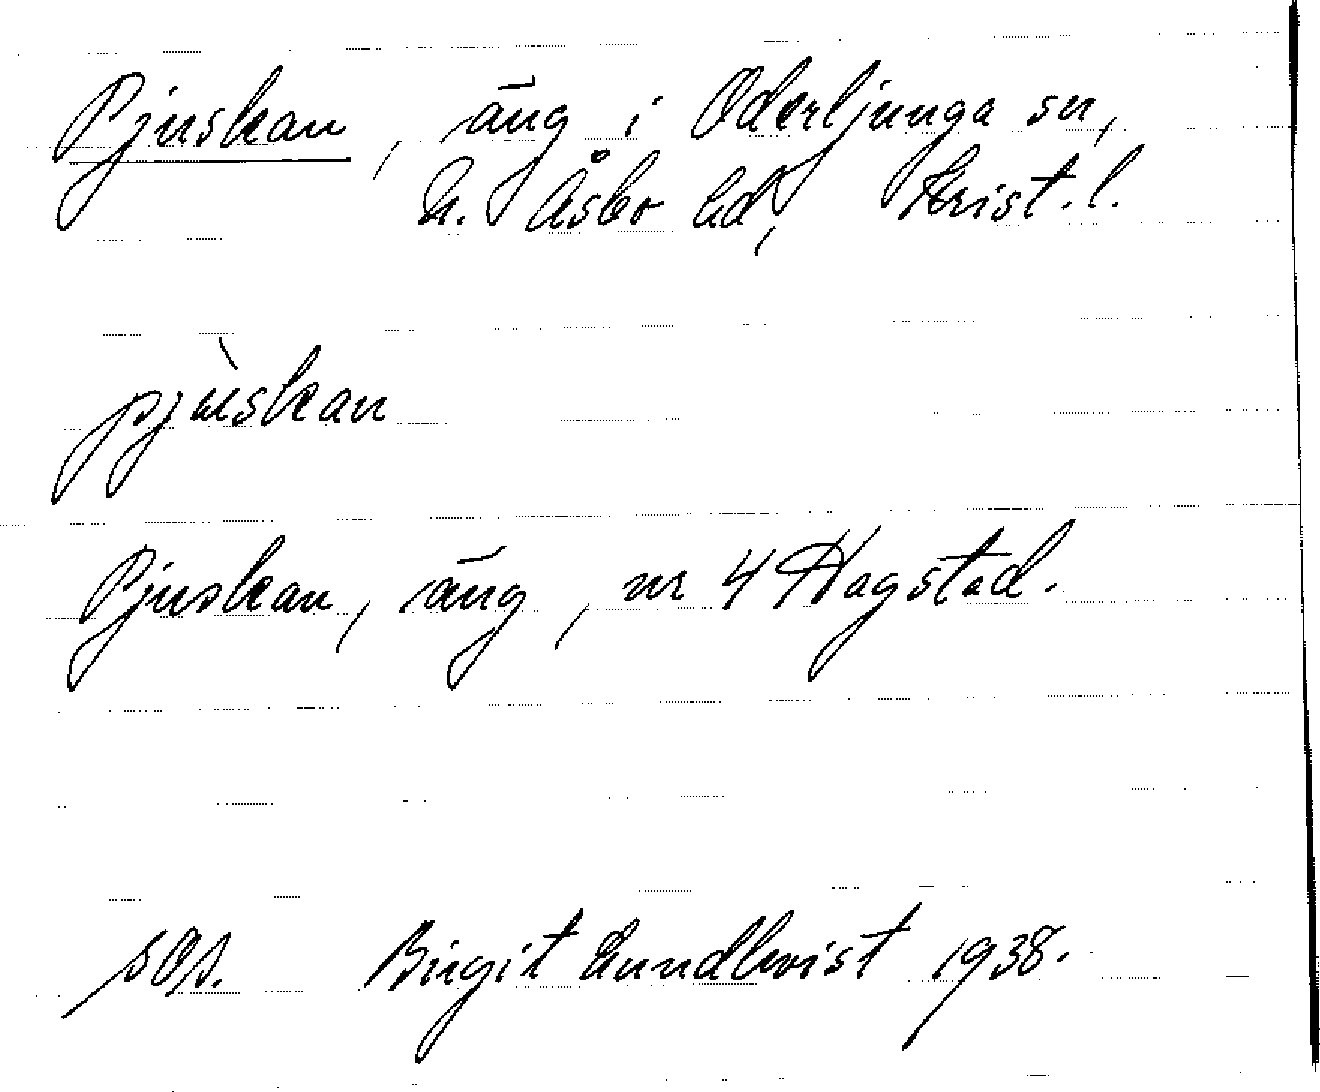 Pjuskan, äng i Oderljunga sn,
N. Åsbo hd, Krist. l.
pjùskan
Pjuskan, äng, nr 4 Hagstad.
Birgit Lundkvist 1938.